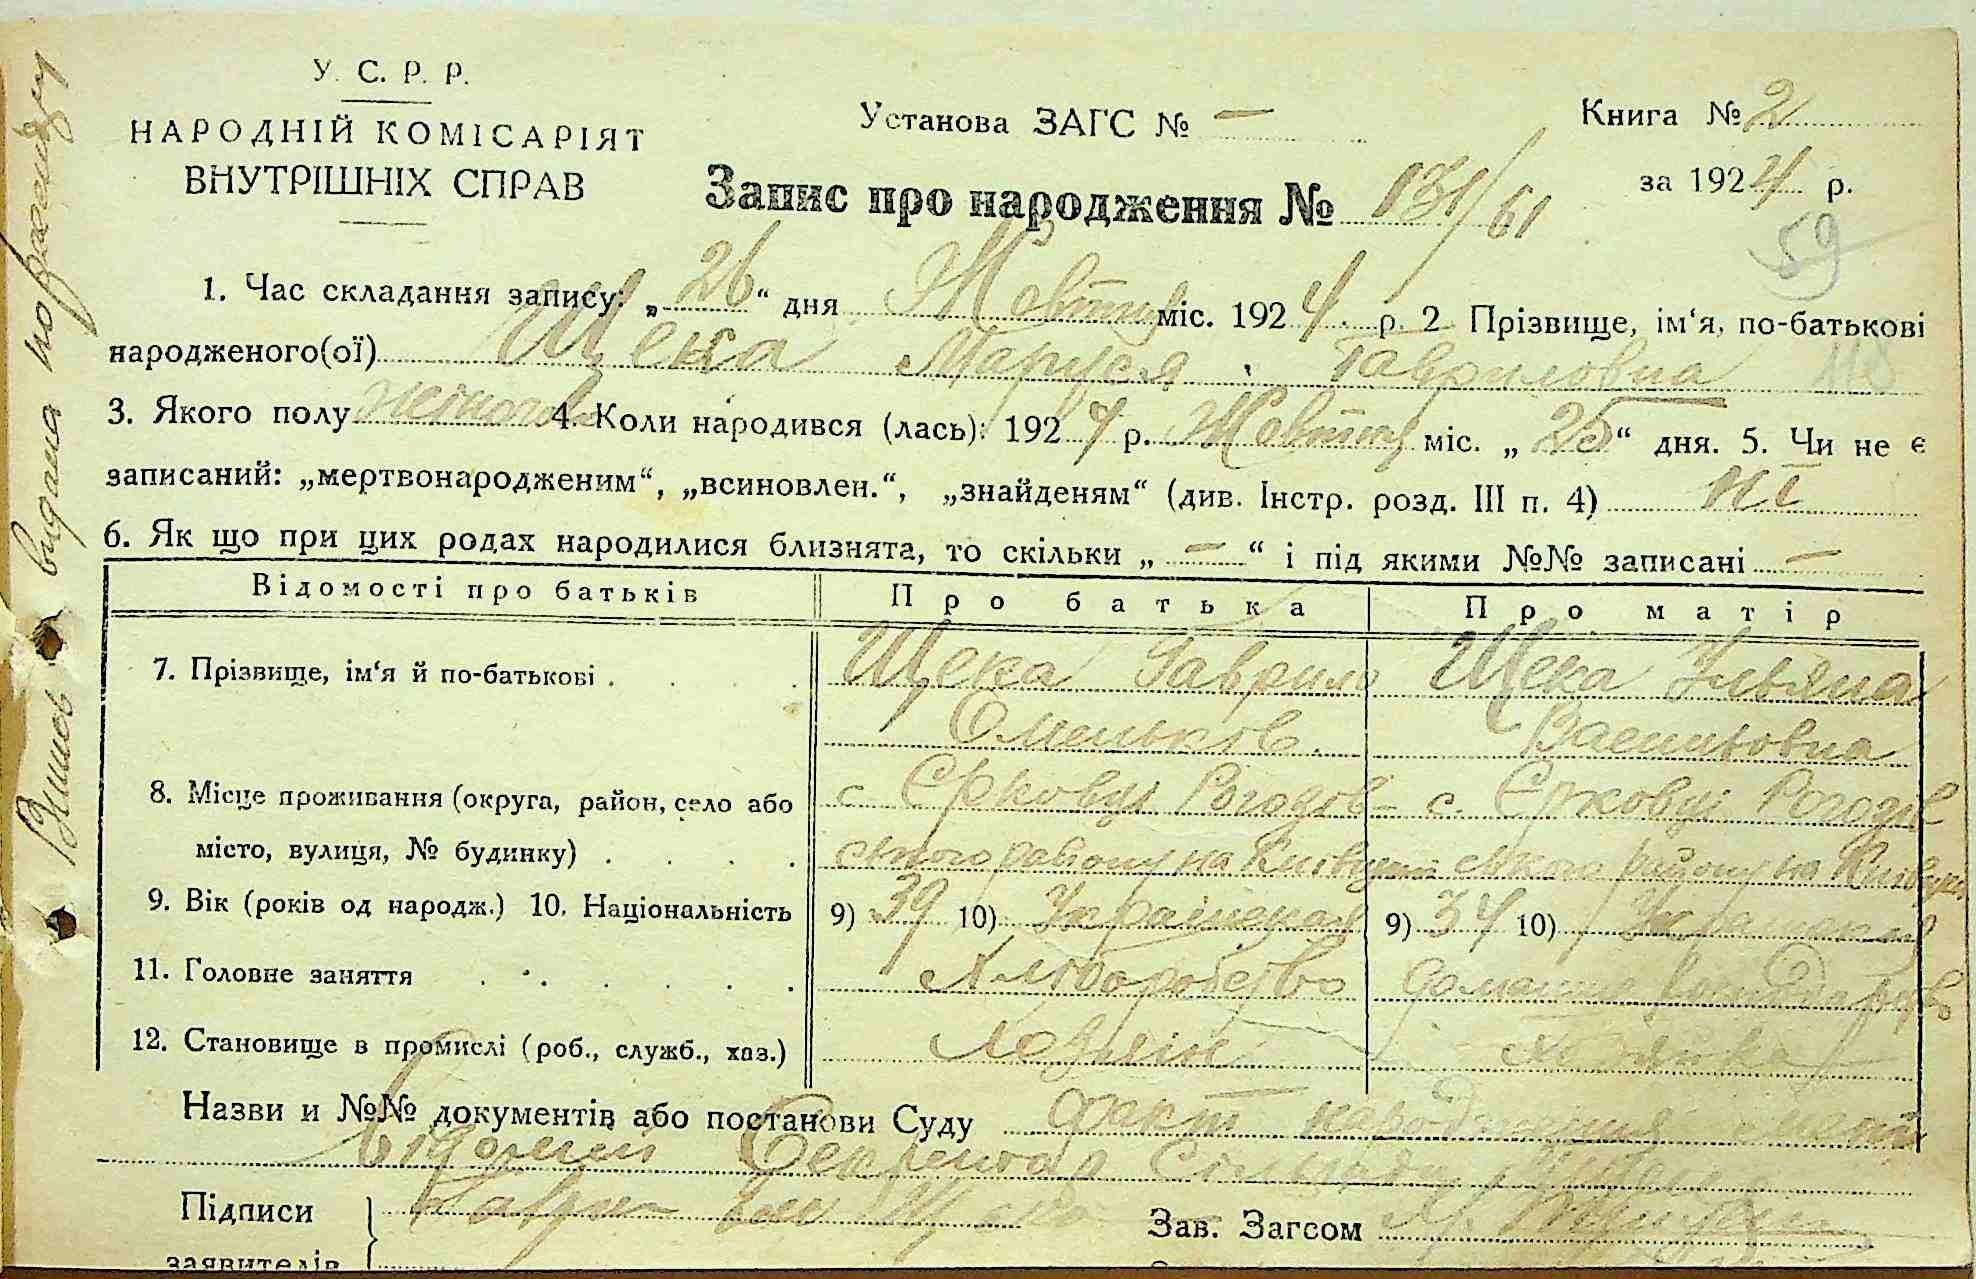 У. С. Р. Р.
НАРОДНІЙ КОМІСАРІЯТ
ВНУТРІШНІХ СПРАВ
Установа ЗАГС № —
Книга № 2
за 1924 р.
Запис про народження № 131/61
59
1. Час складання запису: „26“ дня Жовтня міс. 1924 р. 2 Прізвище, ім‘я, по-батькові
народженого(ої) Щека Маруся Гавриловна
3. Якого полу жіночого 4. Коли народився (лась): 1924 р. Жовтня міс. „25“ дня. 5. Чи не є
записаний: „мертвонародженим“, „всиновлен.“, „знайденям“ (див. Інстр. розд. III п. 4) Ні
6. Як що при цих родах народилися близнята, то скільки „ — “ і під якими №№ записані —
Відомості про батьків Про батька Про матір
7. Прізвище, ім‘я й по-батькові . Щека Гаврило Щека Уляна
Омельков. Васильовна
8. Місце проживання (округа, район, село або с. Єрковці Рогозів- с. Єрковці Рогозів
місто, вулиця, № будинку) . ського району на Київщині ського району на Київщині
9. Вік (років од народж.) 10. Національність 9) 39 10) Українская 9) 34 10)
11. Головне заняття Хліборобство домашнє господарство
12. Становище в промислі (роб., служб., хаз.) Хазяїн хазяйка
Назви и №№ документів або постанови Суду факт народження
відомий Секретар Сільради
Підписи
заявителів
Зав. Загсом
видана